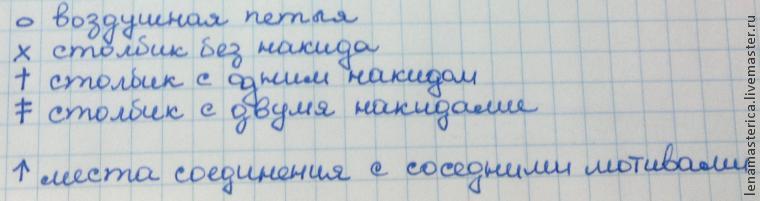 o воздушная петля
x столбик без накида
† столбик с одним накидом
‡ столбик с двумя накидами
↑ места соединения с соседними мотивами
lenamasterica.livemaster.ru